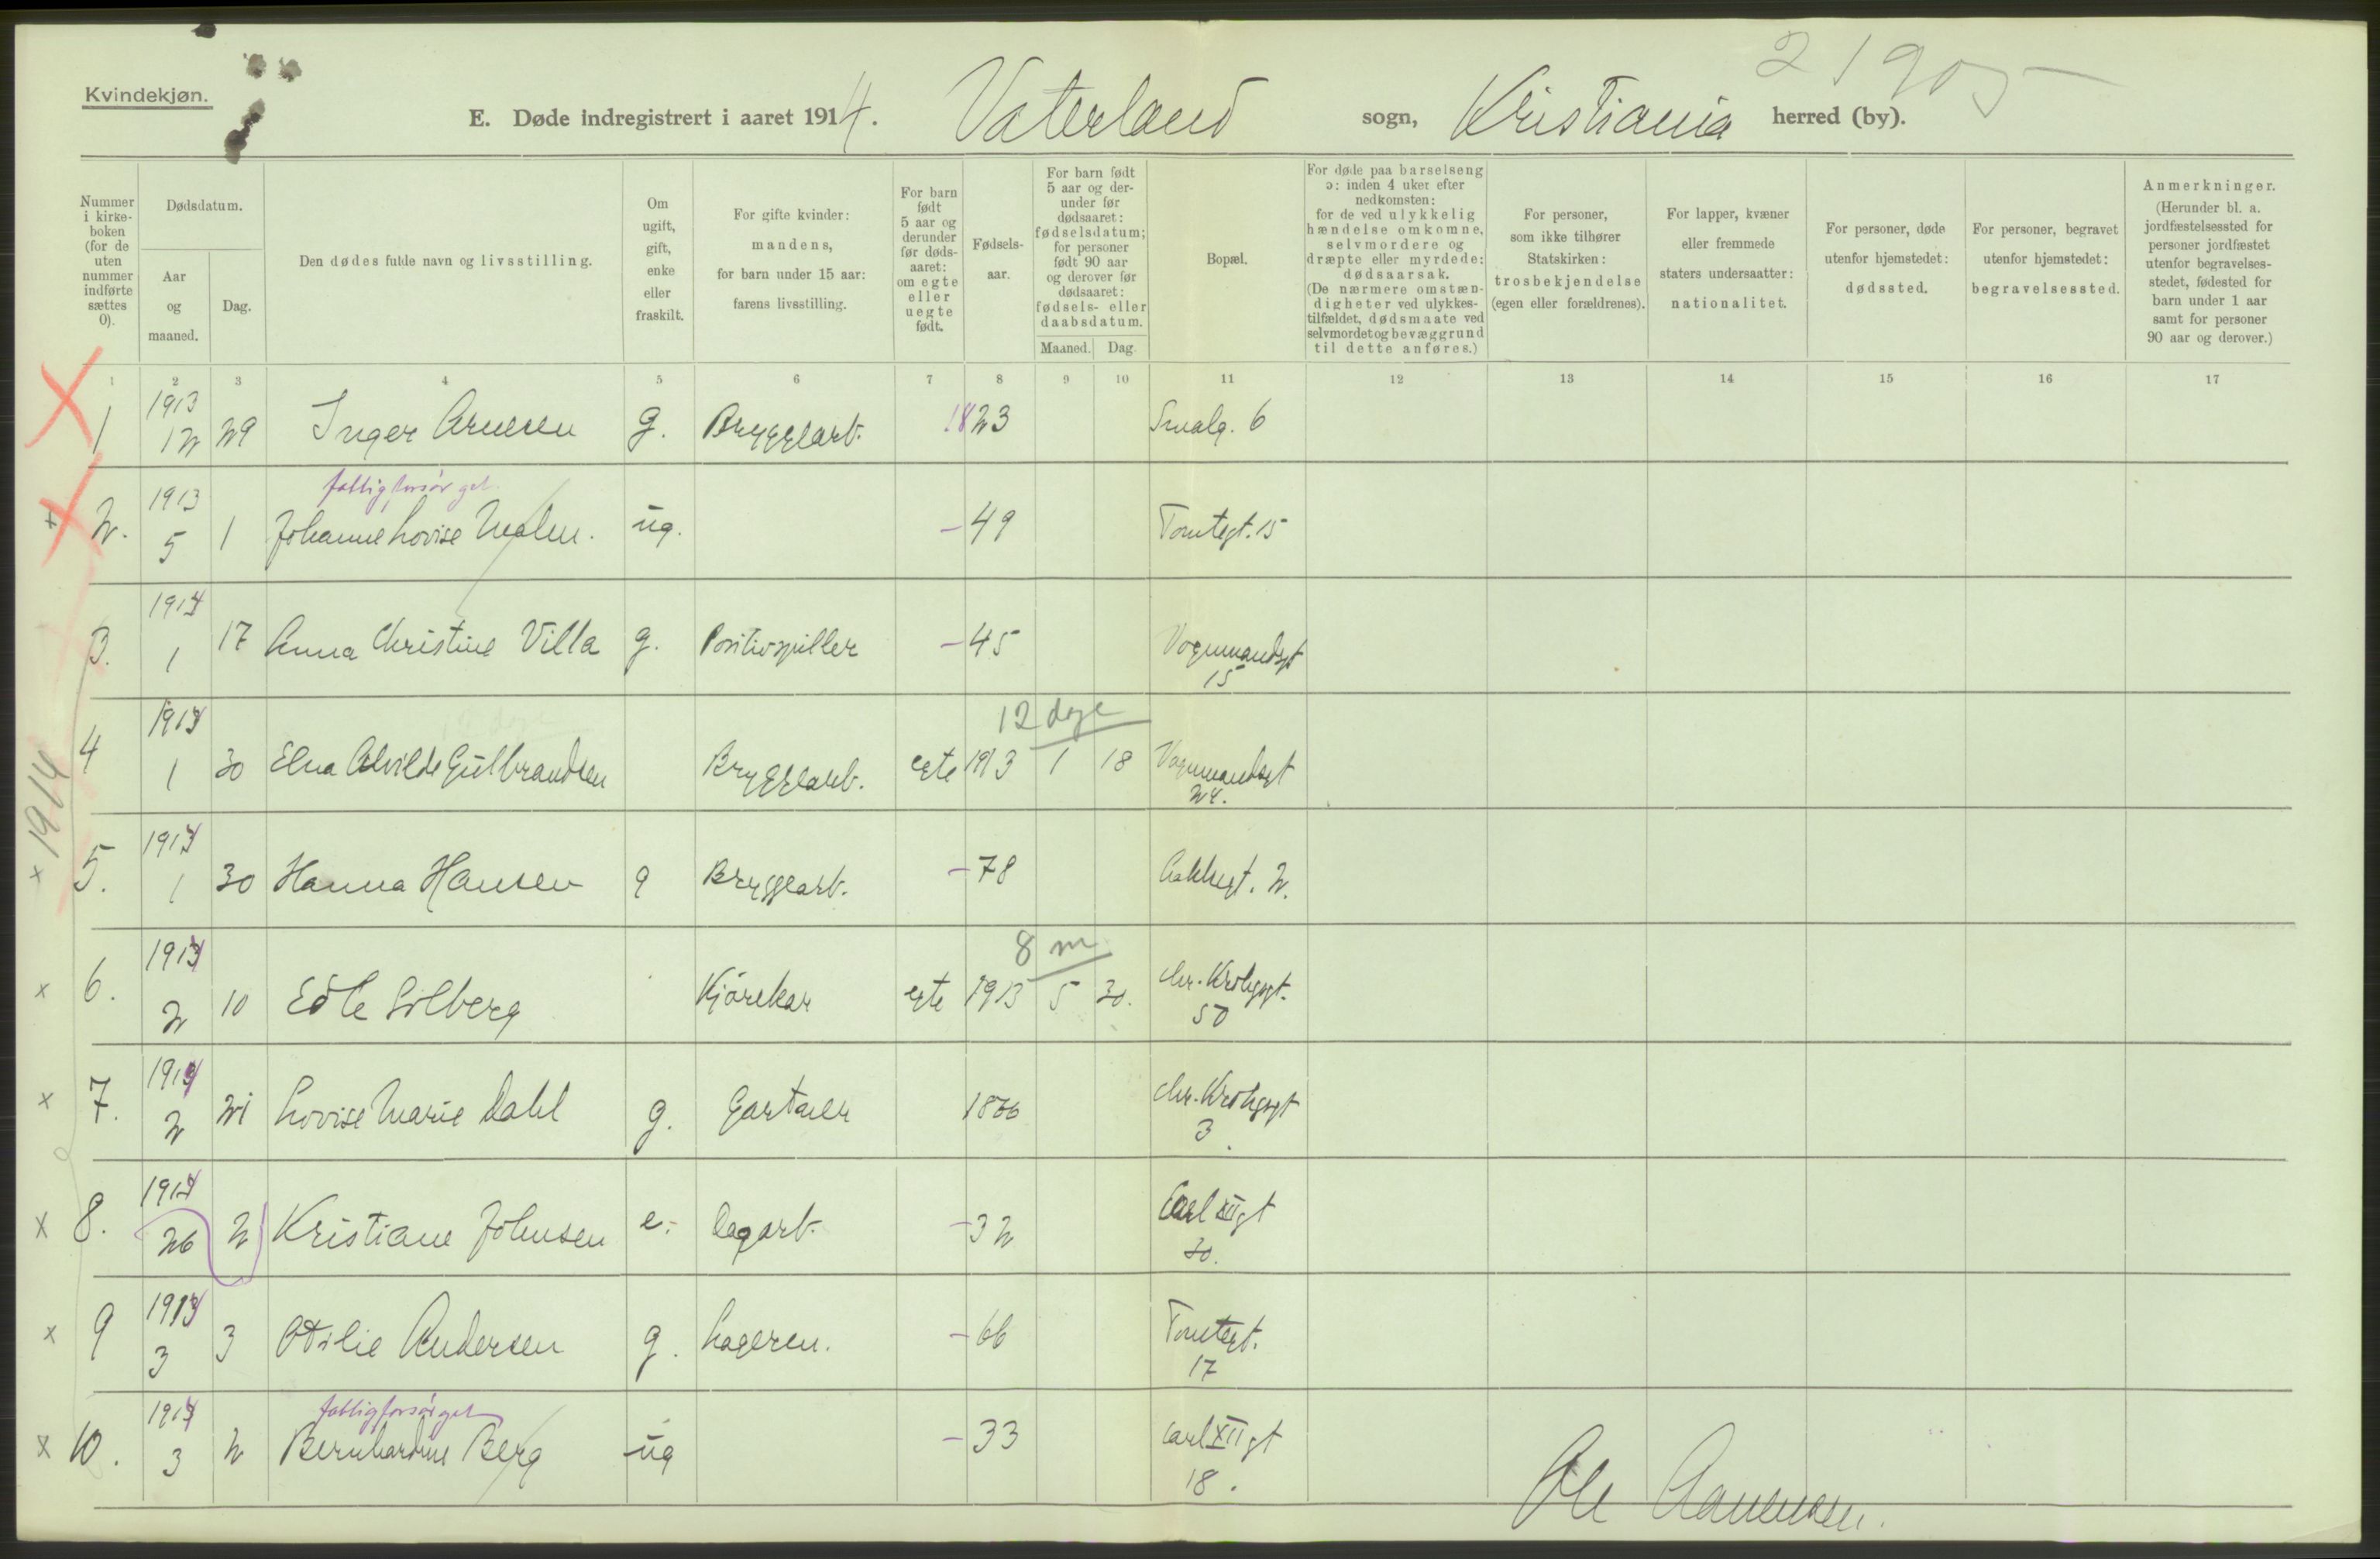 21905
Kvindekjøn.
E. Døde indregistrert i aaret 1914. Vaterland sogn, Kristiania herred (by).
Nummer i kirke-boken (for de uten nummer indførte sættes 0).
Dødsdatum.
Aar og maaned.
Dag.
Den dødes fulde navn og livsstilling.
Om ugift, gift, enke eller fraskilt.
For gifte kvinder: mandens, for barn under 15 aar: farens livsstilling.
For barn født 5 aar og derunder før døds-aaret: om egte eller uegte født.
Fødsels-aar.
For barn født 5 aar og der-under før dødsaaret: fødselsdatum; for personer født 90 aar og derover før dødsaaret: fødsels- eller daabsdatum.
Maaned. Dag.
Bopæl.
For døde paa barselseng ɔ: inden 4 uker efter nedkomsten: for de ved ulykkelig hændelse omkomne, selvmordere og dræpte eller myrdede: dødsaarsak. (De nærmere omstæn-digheter ved ulykkes-tilfældet, dødsmaate ved selvmordet og bevæggrund til dette anføres.)
For personer, som ikke tilhører Statskirken: trosbekjendelse (egen eller forældrenes).
For lapper, kvæner eller fremmede staters undersaatter: nationalitet.
For personer, døde utenfor hjemstedet: dødssted.
For personer, begravet utenfor hjemstedet: begravelsessted.
Anmerkninger. (Herunder bl. a. jordfæstelsessted for personer jordfæstet utenfor begravelses-stedet, fødested for barn under 1 aar samt for personer 90 aar og derover.)
1 2 3 4 5 6 7 8 9 10 11 12 13 14 15 16 17
1 1913 12 29 Inger Arnesen g. Bryggearb. 1823 Smalg. 6
fattigforsørget
2. 1913 5 1 Johanne Lovise Malm. ug. -49 Tomtegt. 15
3. 1914 1 17 Anna Christine Villa g. Positivspiller -45 Vognmandsgt 15
12 dage
4 1914 1 30 Elna Alvilde Gulbrandsen Bryggearb. egte 1913 1 18 Vognmandsgt 24.
1914
5. 1914 1 30 Hanna Hansen g Bryggearb. -78 Lakkegt. 2.
8 m
6. 1914 2 10 Edle Solberg Kjørekar egte 1913 5 30. Chr. Krohgsgt. 50
7. 1914 2 21 Lovise Marie Dahl g. Gartner 1866 Chr. Krohgsgt 3.
8. 1914 26 2 Kristiane Johnsen e. Dagarb. -32 Carl XIIgt 30.
9 1914 3 3 Otilie Andersen g. Lagerm. -66 Tomtegt. 17
fattigforsørget
10. 1914 3 2 Bernhardine Berg ug -33 Carl XIIgt 18.